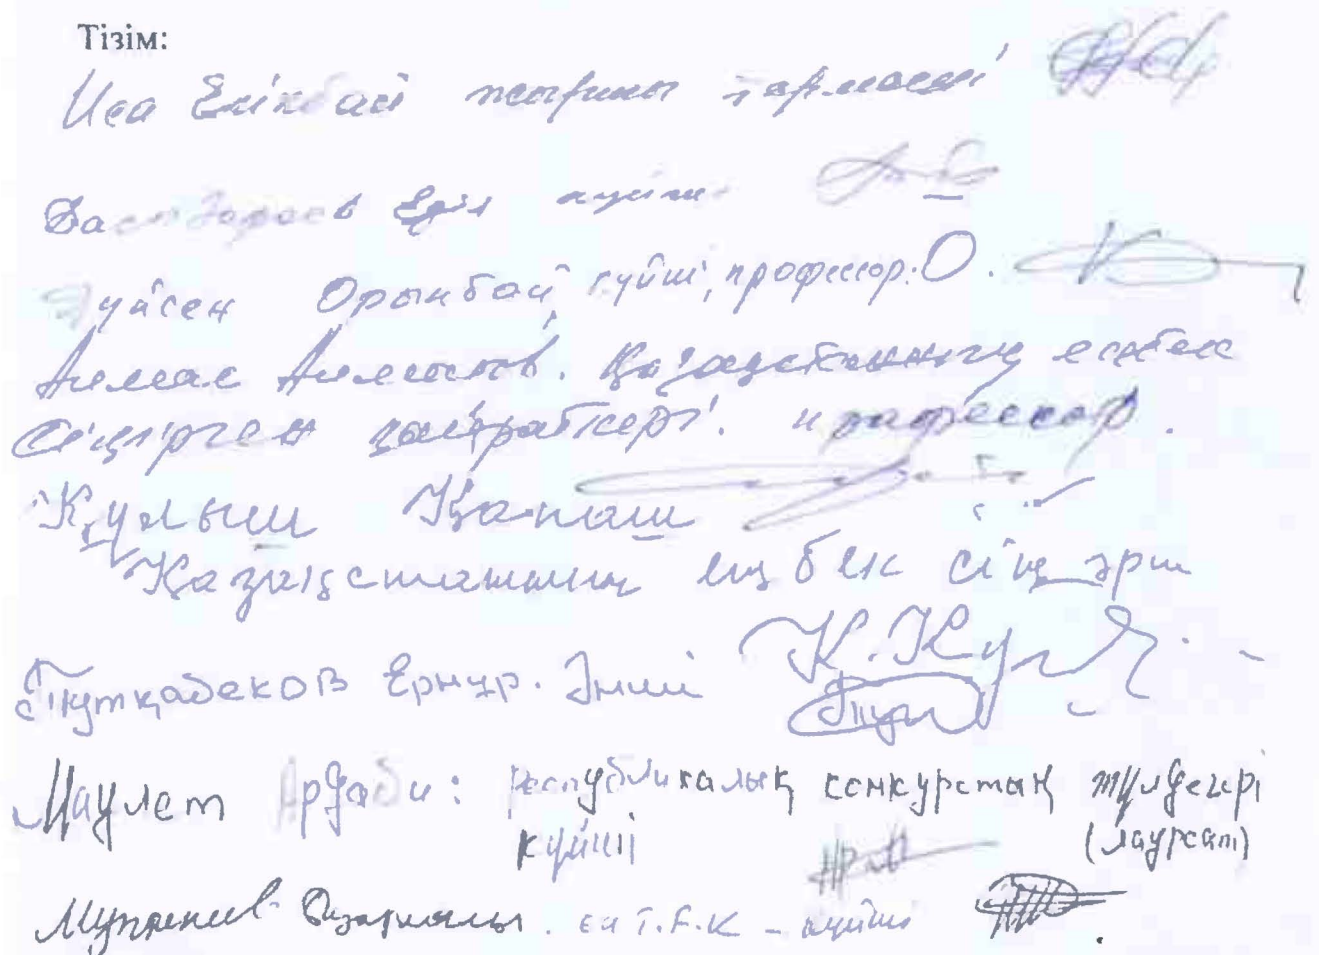 Тізім:
Иса Елікбай жыршы термеші
Еділ күйші
Дүйсен Орынбай күйші, профессор. О.
Алмас Алматов. Қазақстанның еңбек
сіңірген қайраткері. профессор.
Құлыш Қапаш
Қазақстанның еңбек сің әрт
Тұтқабеков Ернұр. Әнші К. Құл
Дәулет Ардаби: республикалық конкурстың жүлдегері
күйші (лауреат)
күйші